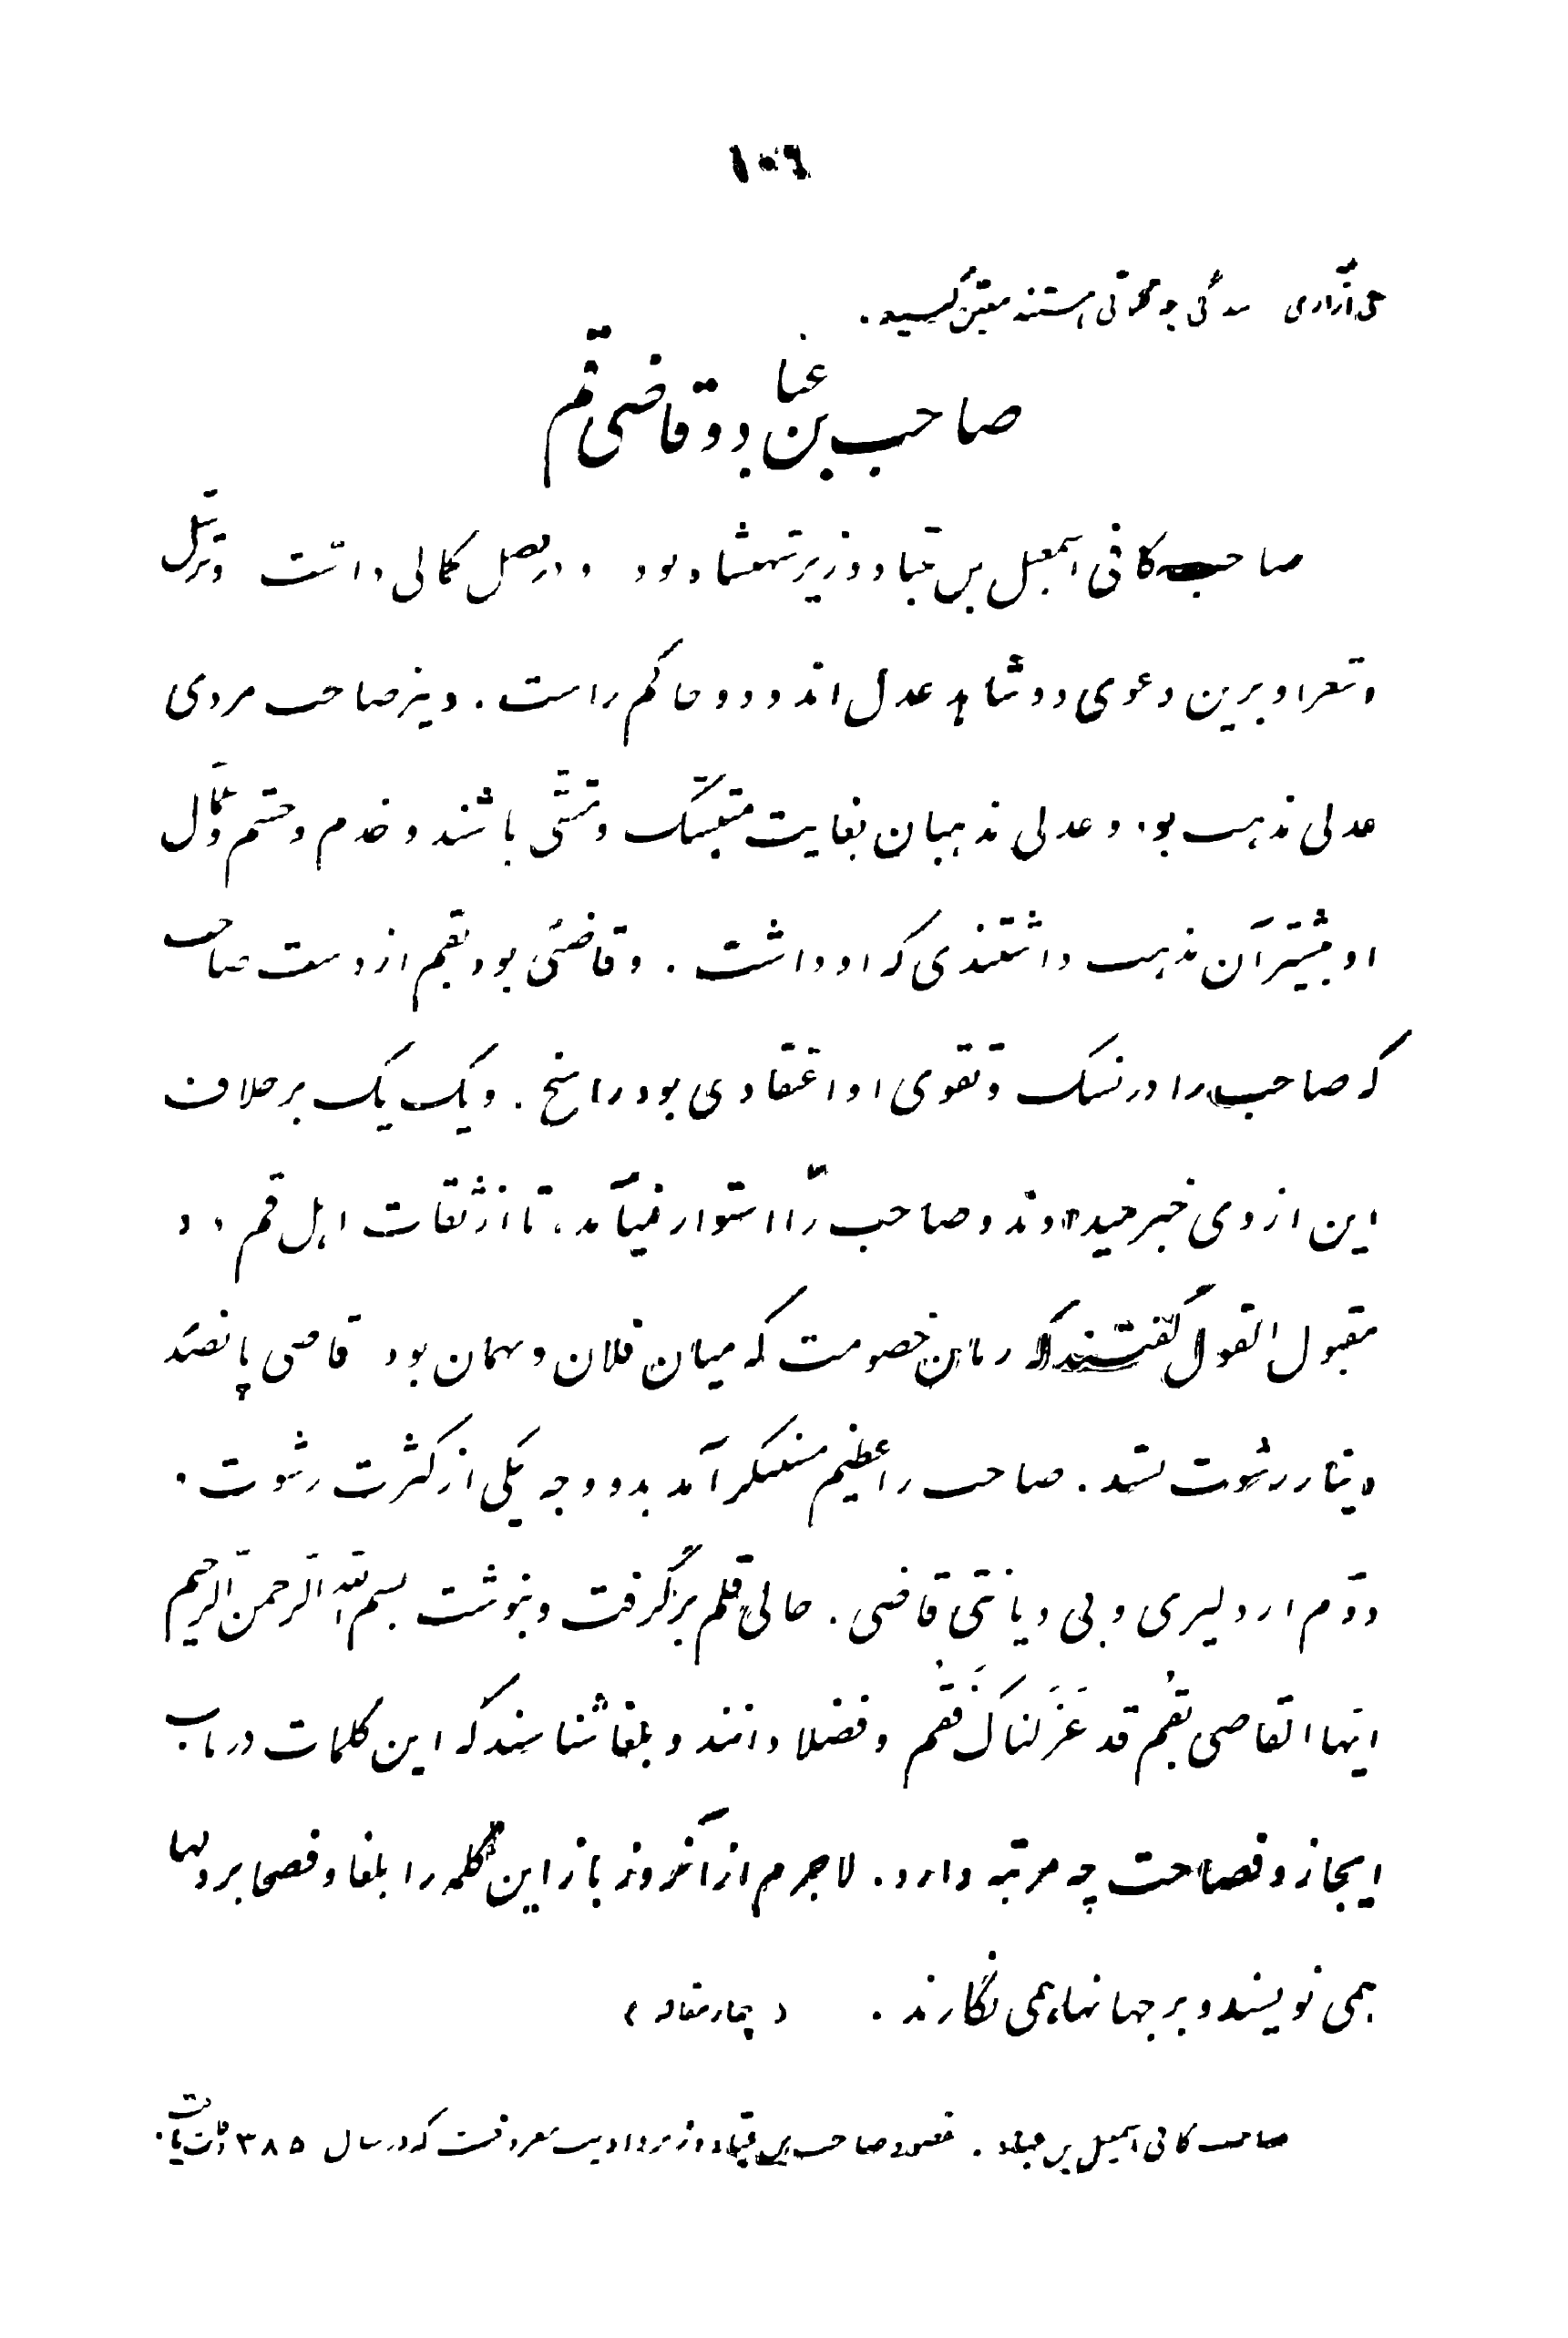 ١٠٦
صاحب بن عباد و قاضی قم
صاحب کافی اسمعیل بن عباد وزیر شهنشاه بود و در فضل کمالی داشت و ترسل
و شعر او برین دعوی دو شاهد عدل اند و دو حاکم راست . و نیز صاحب مردی
عدلی مذهب بود و عدلی مذهبان بغایت متنسک و متقی باشند و خدم و حشم و عمال
او بیشتر آن مذهب داشتندی که او داشت . و قاضئی بود بقم از دست صاحب
که صاحب را در نسک و تقوی او اعتقادی بود راسخ . و یک یک بر خلاف
این از وی خبر میدادند و صاحب را استوار نمیآمد ، تا از ثقات اهل قم دو
مقبول القول گفتند که در فلان خصومت که میان فلان و بهمان بود قاضی پانصد
دینار رشوت بستد . صاحب را عظیم مستنکر آمد بدو وجه یکی از کثرت رشوت .
دوّم از دلیری و بی دیانتی قاضی . حالی قلم برگرفت و بنوشت بسم الله الرّحمن الرّحیم
ایها القاضی بقم قد عَزَلناکَ فَقُم و فضلا دانند و بلغا شناسند که این کلمات در باب
ایجاز و فصاحت چه مرتبه دارد . لاجرم از آنروز باز این کلمه را بلغا و فصحا بر دلها
همی نویسند و بر جهانها همی نگارند . ( چهار مقاله )
صاحب کافی اسمعیل بن عباد . مقصود صاحب بن عباد وزیر و ادیب معروفست که در سال ٣٨٥ وفات یافت .